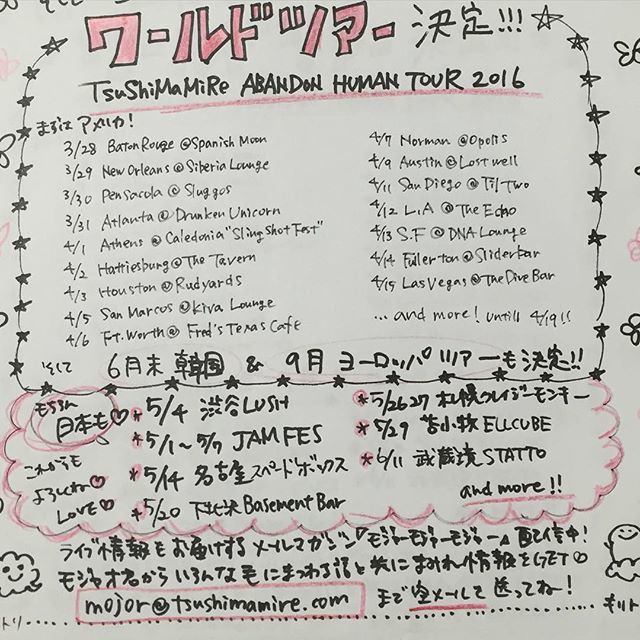 ワールドツアー決定!!!
TsuShiMaMiRe ABANDON HUMAN TOUR 2016
まずはアメリカ!
3/28 Baton Rouge @Spanish Moon
3/29 New Orleans @Siberia Lounge
3/30 Pensacola @ Sluggos
3/31 Atlanta @ Drunken Unicorn
4/1 Athens @ Caledonia "Sling Shot Fest"
4/2 Hattiesburg @ The Tavern
4/3 Houston @ Rudyards
4/5 San Marcos @ Kiva Lounge
4/6 Ft. Worth @ Fred's Texas Cafe
4/7 Norman @ Opolis
4/9 Austin @ Lost well
4/11 San Diego @ Til-Two
4/12 L.A @ The Echo
4/13 S.F @ DNA Lounge
4/14 Fullerton @ Sliderbar
4/15 Las Vegas @ The Dive Bar
... and more! untill 4/19!!
そして 6月末 韓国 & 9月 ヨーロッパツアーも決定!!
もちろん
日本も♡
これからも
よろしくね♡
LOVE♡
*5/4 渋谷LUSH
*5/1~5/7 JAM FES
*5/14 名古屋スペードボックス
*5/20 下北沢 Basement Bar
*5/26 27 札幌クレイジーモンキー
*5/29 苫小牧 ELLCUBE
*6/11 武蔵境 STATTO
and more!!
ライブ情報をお届けするメールマガジン「モジャーモジャーモジャー」配信中!
モジャオ名からいろんな毛にまつわる話と共にまみれ情報をGET♡
mojor@tsushimamire.com まで空メールして送ってね!
キリトリ